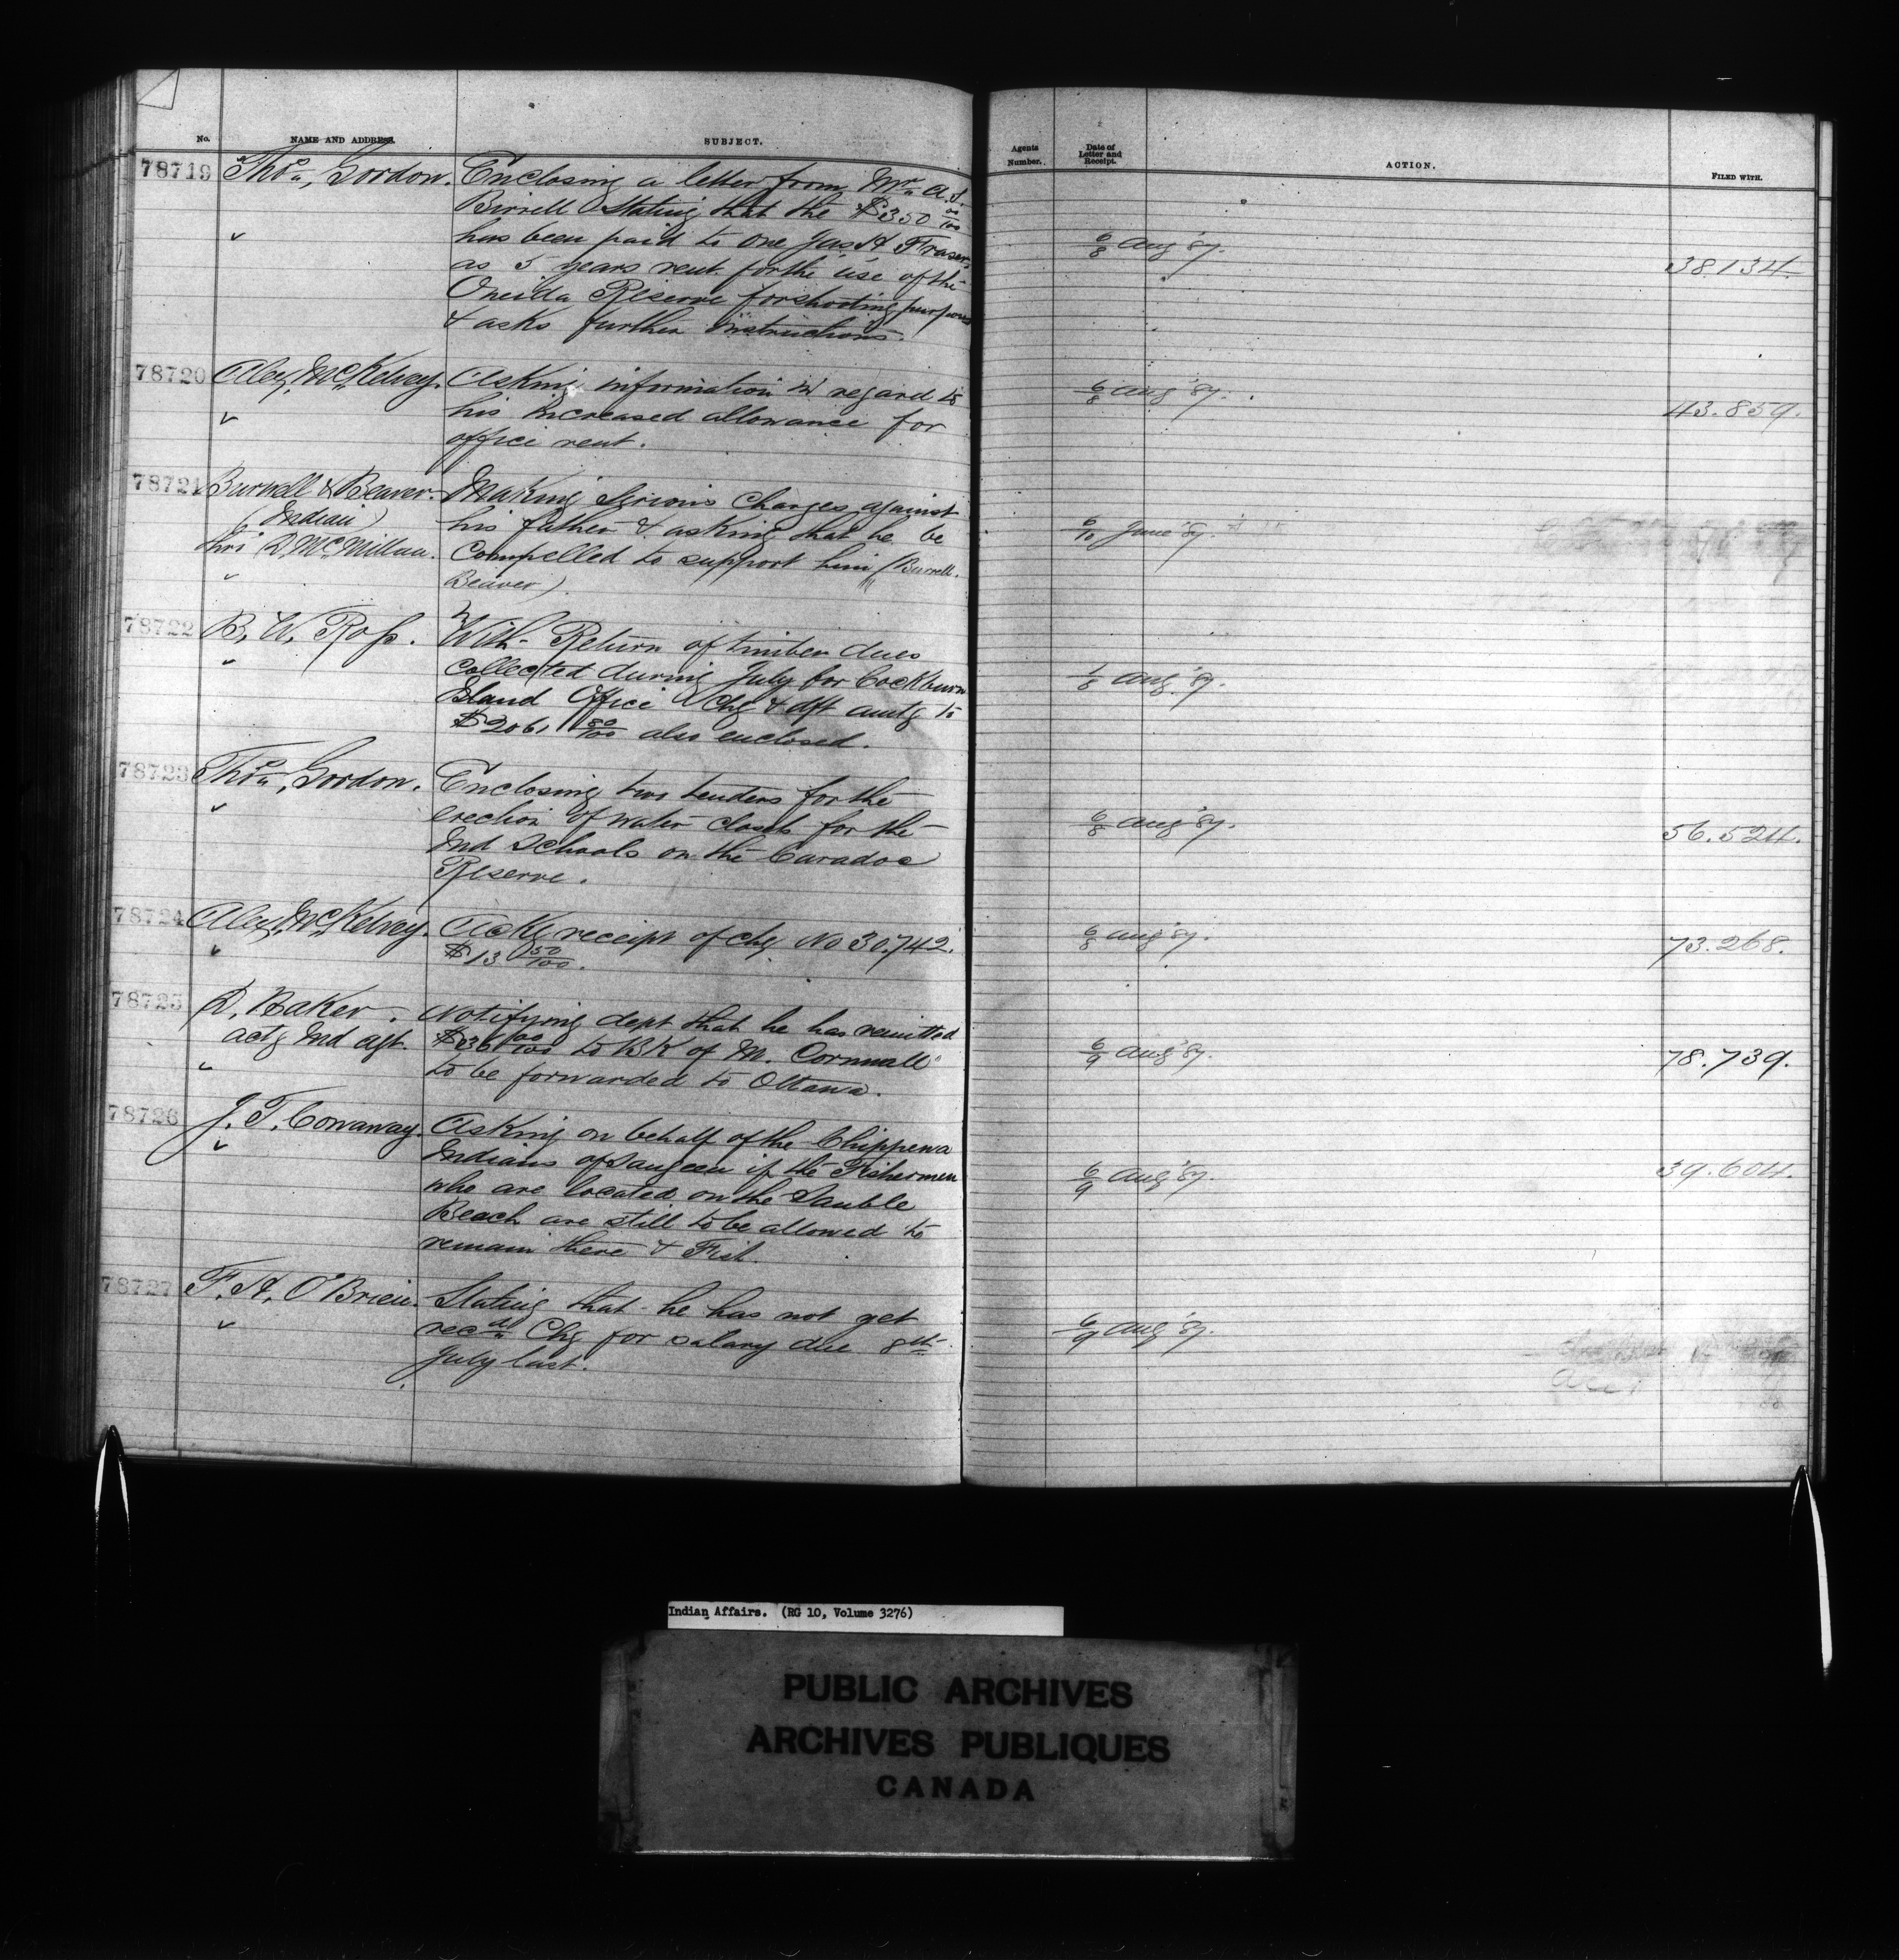 No.
NAME AND ADDRESS.
SUBJECT.
Agents
Number.
Date of
Letter and
Receipt.
ACTION.
FILED WITH.
78719 Thos. Gordon. Enclosing a letter from Mr. A. J.
Birrell Stating that the $350 00/100
has been paid to one Jas H Fraser
as 5 years rent for the use of the
Oneida Reserve for shooting purposes
& asks further instructions.
6/8 Aug '87.
38.134.
78720 Alex, McKelvey. Asking information in regard to
his increased allowance for
office rent.
6/8 Aug '87.
43.859.
78721 Burwell & Beaver. Making Serious Charges against
(Indian) his father & asking that he be
thro D. McMillan. Compelled to support him (Burwell.
Beaver).
6/10 June '87.
78722 B. W. Ross. With Return of timber dues
collected during July for Cockburn
Island Office Chq & dft amtg to
$2061 80/100 also enclosed.
1/8 Aug. '87.
78723 Thos. Gordon. Enclosing two tenders for the
erection of water closets for the
Ind Schools on the Caradoc
Reserve.
6/8 Aug '87.
56.524.
78724 Alex, McKelvey. Ackg receipt of chq No 30,742.
$13 50/100.
6/8 Aug '87.
73.268.
78725 D. Baker. Notifying dept that he has remitted
actg Ind agt. $36 00/100 to BK of M. Cornwall
to be forwarded to Ottawa.
6/9 Aug '87.
78.739.
78726 J. T. Conaway. Asking on behalf of the Chippewa
Indians of Saugeen if the Fishermen
who are located on the Sauble
Beach are still to be allowed to
remain there & Fish.
6/9 Aug '87.
39.604.
78727 F. H. O'Brien. Stating that he has not yet
recd Chq for salary due 8th
July last.
6/9 Aug '87.
Indian Affairs. (RG 10, Volume 3276)
PUBLIC ARCHIVES
ARCHIVES PUBLIQUES
CANADA